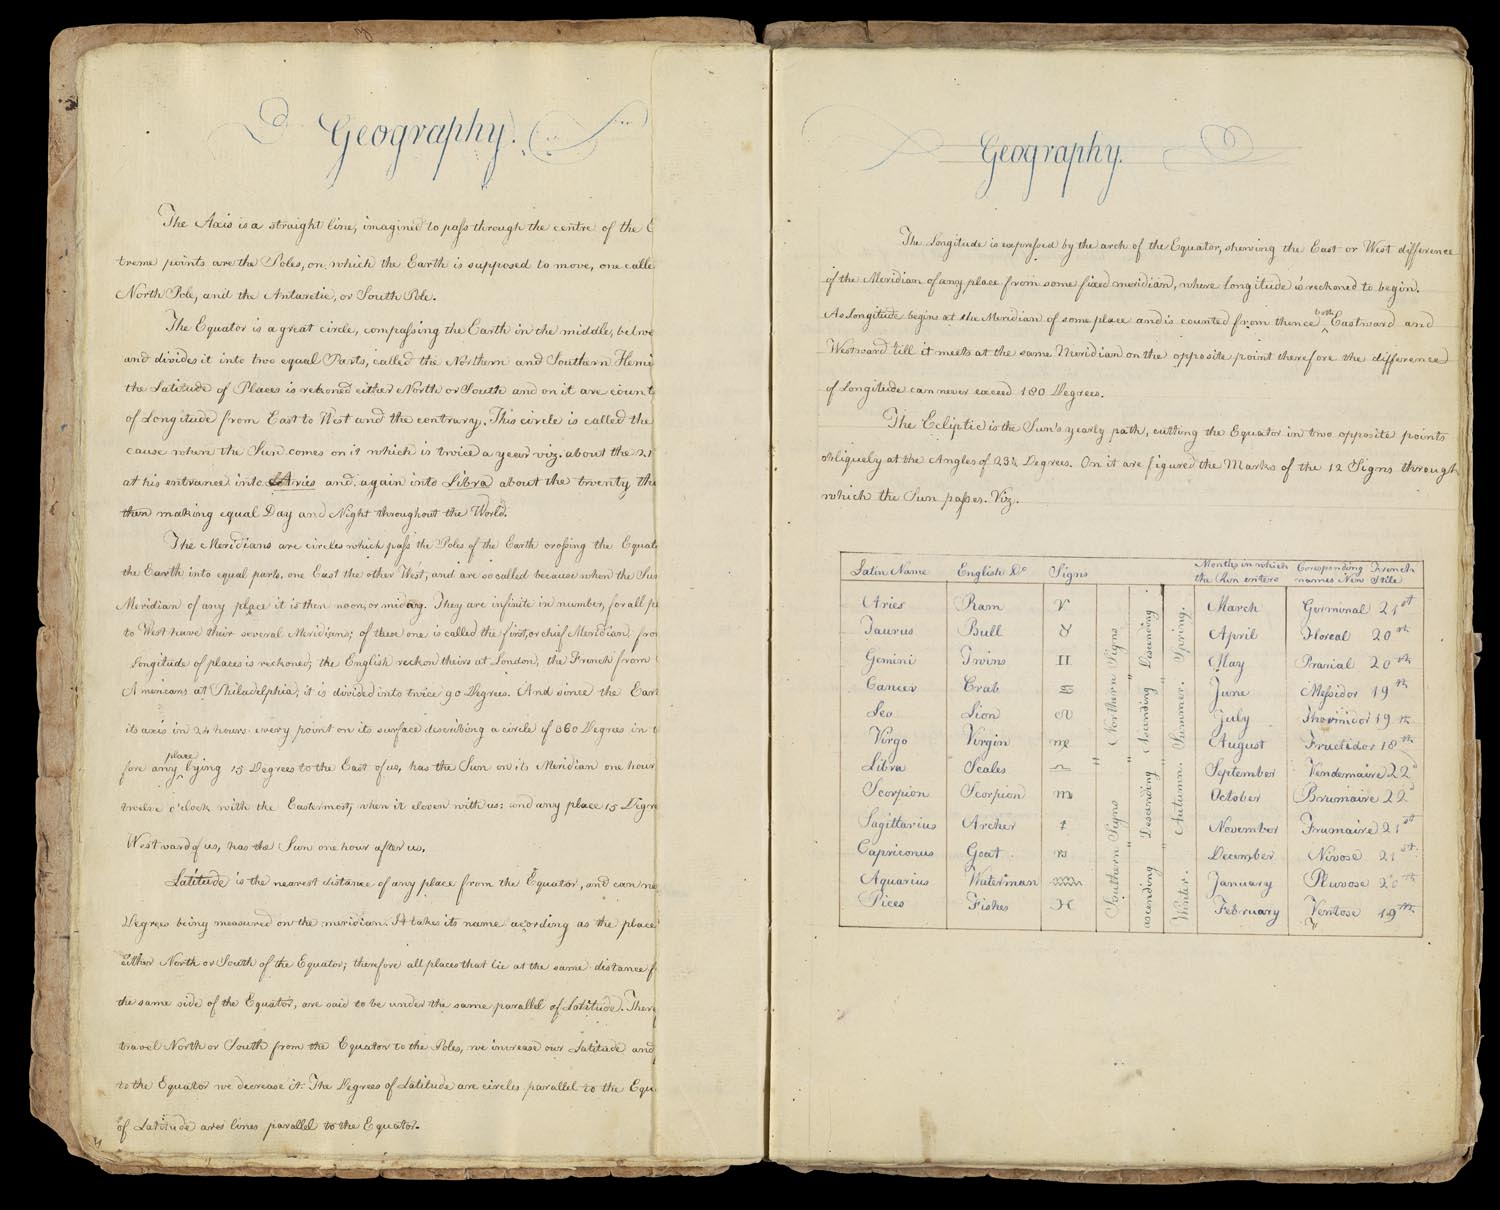 Geography.
The Axis is a straight line, imagined to pass through the centre of the E
treme points are the Poles, on which the Earth is supposed to move, one calle
North Pole, and the Antarctic, or South Pole.
The Equator is a great circle, compassing the Earth in the middle, betwe
and divides it into two equal Parts, called the Northern and Southern Hemi
the Latitude of Places is reckoned either North or South and on it are count
of Longitude from East to West and the contrary. This circle is called the
cause when the Sun comes on it which is twice a year viz. about the 21
at his entrance into Aries and again into Libra about the twenty th
then making equal Day and Night throughout the World.
The Meridians are circles which pass the Poles of the Earth crossing the Equat
the Earth into equal parts, one East the other West, and are so called because when the Sun
Meridian of any place it is then noon, or midday. They are infinite in number, for all p
to West have their several Meridians; of these one is called the first, or chief Meridian, from
Longitude of places is reckoned; the English reckon theirs at London, the French from
Americans at Philadelphia; it is divided into twice 90 Degrees. And since the Eart
its axis in 24 hours every point on its surface describing a circle of 360 Degrees in t
fore any place lying 15 Degrees to the East of us, has the Sun on its Meridian one hour
twelve o'clock with the Easternmost, when it eleven with us: and any place 15 Degre
Westward of us, has the Sun one hour after us.
Latitude is the nearest distance of any place from the Equator, and can ne
Degrees being measured on the meridian. It takes its name acording as the place
Either North or South of the Equator; therefore all places that lie at the same distance f
the same side of the Equator, are said to be under the same parallel of Latitude. There
travel North or South from the Equator to the Poles, we increase our Latitude and
to the Equator we decrease it. The Degrees of Latitude are circles parallel to the Equ
of Latitude ares lines parallel to the Equator.
Geography.
The Longitude is expressed by the arch of the Equator, shewing the East or West difference
of the Meridian of any place from some fixed meridian, where longitude is reckoned to begin.
As Longitude begins at the Meridian of some place and is counted from thence both Eastward and
Westward till it meets at the same Meridian on the opposite point therefore the difference
of Longitude can never exceed 180 Degrees.
The Ecliptic is the Sun's yearly path, cutting the Equator in two opposite points
obliquely at the Angles of 23½ Degrees. On it are figured the Marks of the 12 Signs through
which the Sun passes. Viz.
Latin Name English Do Signs Months in which the Sun enters Coresponding French names New Stile
Aries Ram ♈ March Germinal 21st
Taurus Bull ♉ April Floreal 20th
Gemini Twins ♊ May Prarial 20th
Cancer Crab ♋ June Messidor 19th
Leo Lion ♌ July Thormidor 19th
Virgo Virgin ♍ August Fructidor 18th
Libra Scales ♎ September Vendemaire 22d
Scorpion Scorpion ♏ October Brumaire 22d
Sagittarius Archer ♐ November Frumaire 21st
Capriconus Goat ♑ December Nivose 21st
Aquarius Waterman ♒ January Pluvose 20th
Pices Fishes ♓ February Ventose 19th
Southern Signs " Northern Signs
ascending " Desending " Ascending " Desending
Winter. " Autumn. " Summer. " Spring.